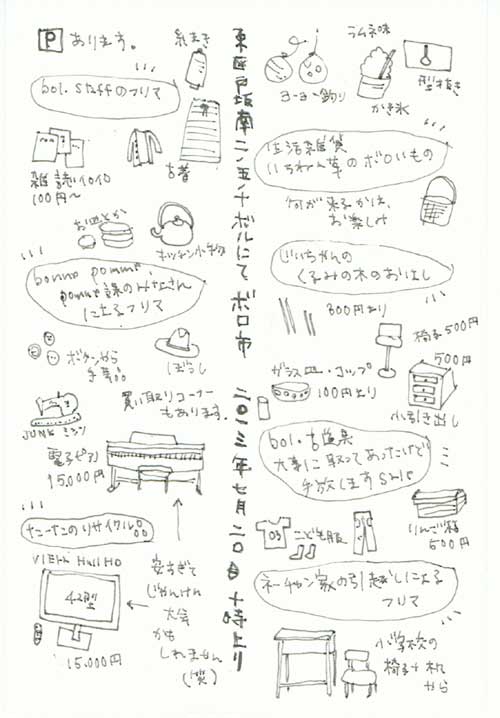 P あります。
糸まき
bol. staffのフリマ
雑誌イロイロ
100円〜
古着
お皿とか
キッチン小物
bonne pomme,
pomme課のみなさん
によるフリマ
ボタンから
手芸品
ぼうし
買い取りコーナー
もあります。
JUNKミシン
電子ピアノ
15,000円
たこたこのリサイクル品
42型
15,000円
安すぎて
じゃんけん
大会
かも
しれません
(笑)
東区戸坂南二ノ五ノ十ボルにて ボロ市 二〇一三年七月二〇日十時より
ヨーヨー釣り
ラムネ味
かき氷
型抜き
生活雑貨
いちわん草のボロいもの
何が来るかは、
お楽しみ
じいちゃんの
くるみの木のおはし
300円より
椅子500円
ガラス皿・コップ
100円より
500円
小引き出し
bol. 古道具
大事に取ってあったけど
手放しますSALE
こども服
りんご箱
500円
ネーチャン家の引越しによる
フリマ
小学校の
椅子+机
から